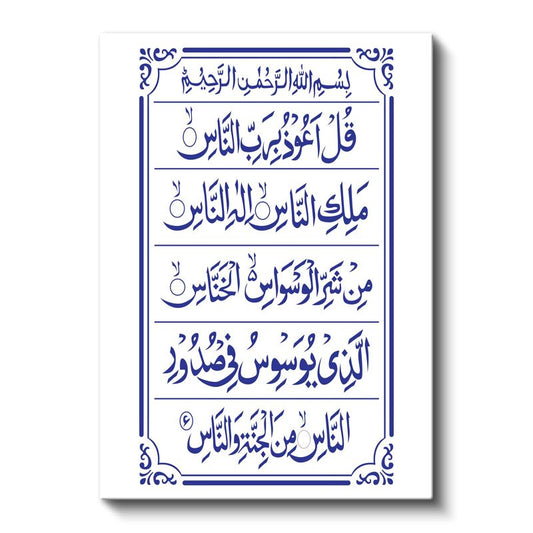 بِسْمِ اللهِ الرَّحْمٰنِ الرَّحِيْمِ
قُلْ اَعُوْذُ بِرَبِّ النَّاسِ ۙ
مَلِكِ النَّاسِ ۙ اِلٰهِ النَّاسِ ۙ
مِنْ شَرِّ الْوَسْوَاسِ ۙ الْخَنَّاسِ ۙ
الَّذِىْ يُوَسْوِسُ فِىْ صُدُوْرِ
النَّاسِ ۙ مِنَ الْجِنَّةِ وَالنَّاسِ ع